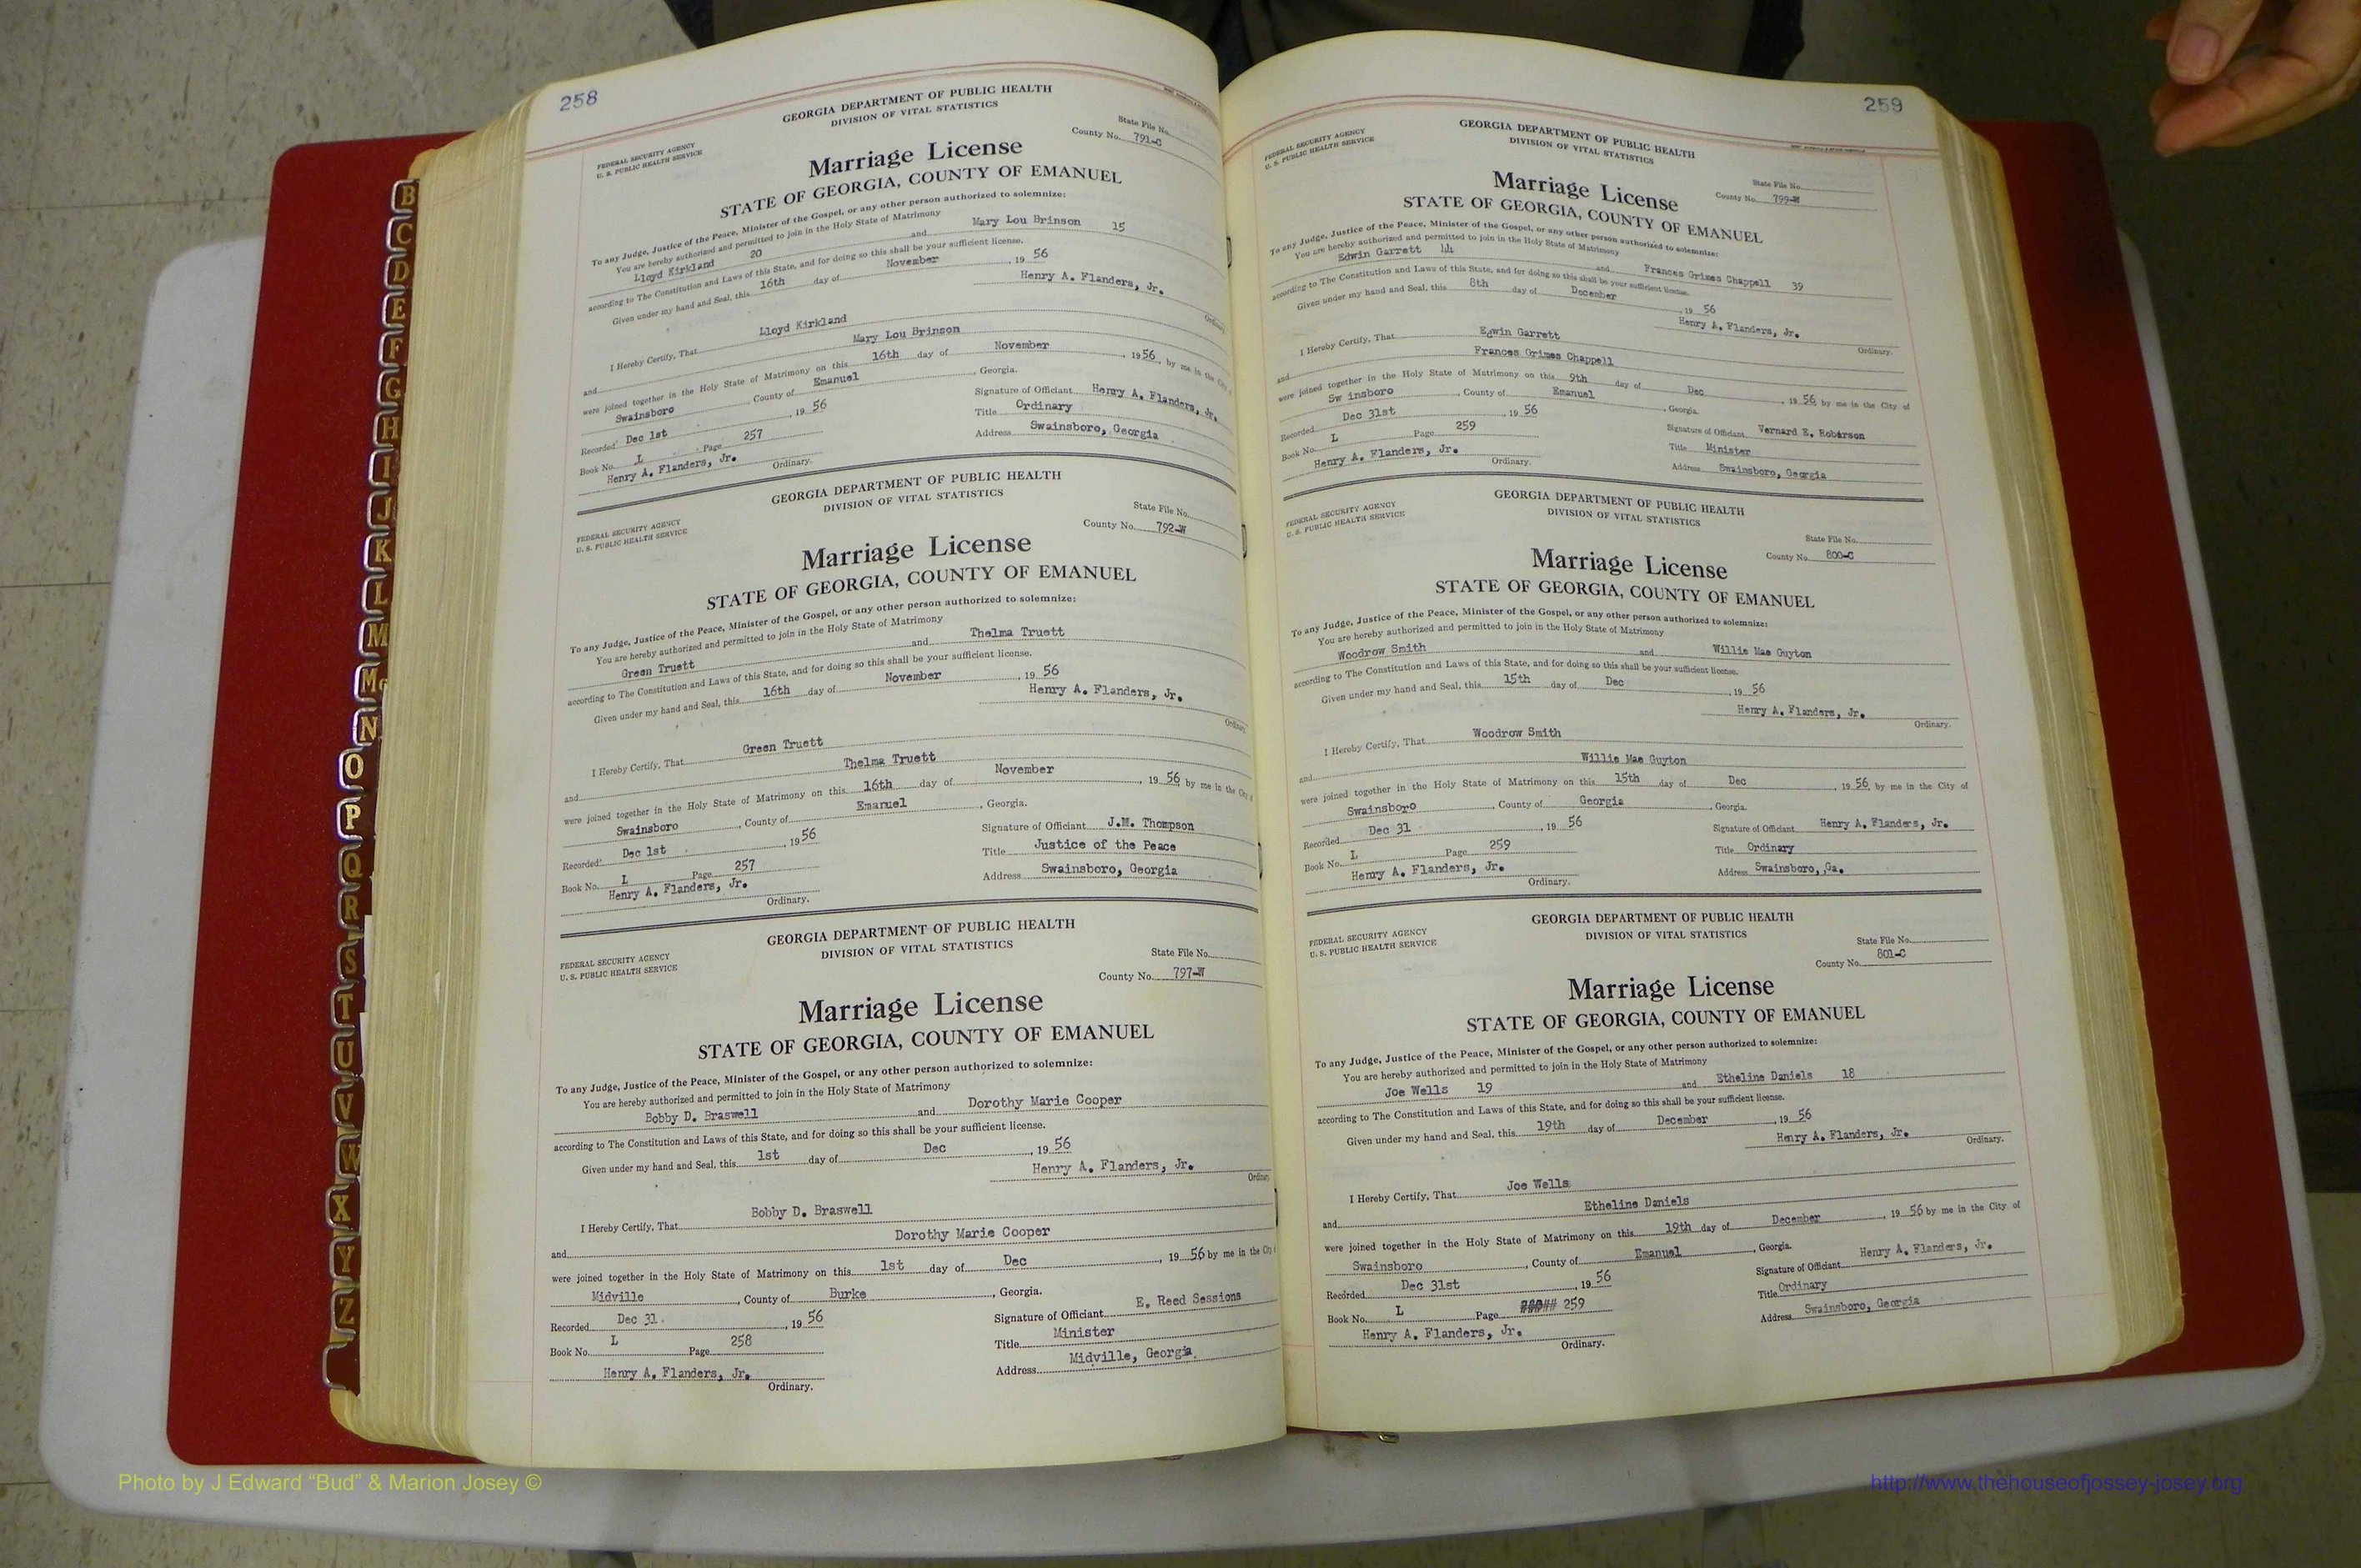 258
GEORGIA DEPARTMENT OF PUBLIC HEALTH
DIVISION OF VITAL STATISTICS
FEDERAL SECURITY AGENCY
U. S. PUBLIC HEALTH SERVICE
State File No.
County No. 791-C
Marriage License
STATE OF GEORGIA, COUNTY OF EMANUEL
To any Judge, Justice of the Peace, Minister of the Gospel, or any other person authorized to solemnize:
You are hereby authorized and permitted to join in the Holy State of Matrimony
Lloyd Kirkland 20 and Mary Lou Brinson 15
according to The Constitution and Laws of this State, and for doing so this shall be your sufficient license.
Given under my hand and Seal, this 16th day of November, 19 56
Henry A. Flanders, Jr.
Ordinary
I Hereby Certify, That Lloyd Kirkland
and Mary Lou Brinson
were joined together in the Holy State of Matrimony on this 16th day of November, 19 56, by me in the City
Swainsboro, County of Emanuel, Georgia.
Recorded Dec 1st, 19 56
Signature of Officiant Henry A. Flanders, Jr.
Book No. L Page 257
Title Ordinary
Henry A. Flanders, Jr.
Address Swainsboro, Georgia
Ordinary.
GEORGIA DEPARTMENT OF PUBLIC HEALTH
DIVISION OF VITAL STATISTICS
FEDERAL SECURITY AGENCY
U. S. PUBLIC HEALTH SERVICE
State File No.
County No. 792-W
Marriage License
STATE OF GEORGIA, COUNTY OF EMANUEL
To any Judge, Justice of the Peace, Minister of the Gospel, or any other person authorized to solemnize:
You are hereby authorized and permitted to join in the Holy State of Matrimony
Green Truett and Thelma Truett
according to The Constitution and Laws of this State, and for doing so this shall be your sufficient license.
Given under my hand and Seal, this 16th day of November, 19 56
Henry A. Flanders, Jr.
Ordinary
I Hereby Certify, That Green Truett
and Thelma Truett
were joined together in the Holy State of Matrimony on this 16th day of November, 19 56 by me in the City
Swainsboro, County of Emanuel, Georgia.
Recorded Dec 1st, 19 56
Signature of Officiant J.M. Thompson
Book No. L Page 257
Title Justice of the Peace
Henry A. Flanders, Jr.
Address Swainsboro, Georgia
Ordinary.
GEORGIA DEPARTMENT OF PUBLIC HEALTH
DIVISION OF VITAL STATISTICS
FEDERAL SECURITY AGENCY
U. S. PUBLIC HEALTH SERVICE
State File No.
County No. 797-W
Marriage License
STATE OF GEORGIA, COUNTY OF EMANUEL
To any Judge, Justice of the Peace, Minister of the Gospel, or any other person authorized to solemnize:
You are hereby authorized and permitted to join in the Holy State of Matrimony
Bobby D. Braswell and Dorothy Marie Cooper
according to The Constitution and Laws of this State, and for doing so this shall be your sufficient license.
Given under my hand and Seal, this 1st day of Dec, 19 56
Henry A. Flanders, Jr.
Ordinary
I Hereby Certify, That Bobby D. Braswell
and Dorothy Marie Cooper
were joined together in the Holy State of Matrimony on this 1st day of Dec, 19 56 by me in the City
Midville, County of Burke, Georgia.
Recorded Dec 31, 19 56
Signature of Officiant E. Reed Sessions
Book No. L Page 258
Title Minister
Henry A. Flanders, Jr.
Address Midville, Georgia
Ordinary.
259
GEORGIA DEPARTMENT OF PUBLIC HEALTH
DIVISION OF VITAL STATISTICS
FEDERAL SECURITY AGENCY
U. S. PUBLIC HEALTH SERVICE
State File No.
County No. 799-W
Marriage License
STATE OF GEORGIA, COUNTY OF EMANUEL
To any Judge, Justice of the Peace, Minister of the Gospel, or any other person authorized to solemnize:
You are hereby authorized and permitted to join in the Holy State of Matrimony
Edwin Garrett 44 and Frances Grimes Chappell 39
according to The Constitution and Laws of this State, and for doing so this shall be your sufficient license.
Given under my hand and Seal, this 8th day of December, 19 56
Henry A. Flanders, Jr.
Ordinary.
I Hereby Certify, That Edwin Garrett
and Frances Grimes Chappell
were joined together in the Holy State of Matrimony on this 9th day of Dec, 19 56 by me in the City of
Sw insboro, County of Emanuel, Georgia.
Recorded Dec 31st, 19 56
Signature of Officiant Vernard E. Robårson
Book No. L Page 259
Title Minister
Henry A. Flanders, Jr.
Address Swainsboro, Georgia
Ordinary.
GEORGIA DEPARTMENT OF PUBLIC HEALTH
DIVISION OF VITAL STATISTICS
FEDERAL SECURITY AGENCY
U. S. PUBLIC HEALTH SERVICE
State File No.
County No. 800-C
Marriage License
STATE OF GEORGIA, COUNTY OF EMANUEL
To any Judge, Justice of the Peace, Minister of the Gospel, or any other person authorized to solemnize:
You are hereby authorized and permitted to join in the Holy State of Matrimony
Woodrow Smith and Willie Mae Guyton
according to The Constitution and Laws of this State, and for doing so this shall be your sufficient license.
Given under my hand and Seal, this 15th day of Dec, 19 56
Henry A. Flanders, Jr.
Ordinary.
I Hereby Certify, That Woodrow Smith
and Willie Mae Guyton
were joined together in the Holy State of Matrimony on this 15th day of Dec, 19 56, by me in the City of
Swainsboro, County of Georgia, Georgia.
Recorded Dec 31, 19 56
Signature of Officiant Henry A. Flanders, Jr.
Book No. L Page 259
Title Ordinary
Henry A. Flanders, Jr.
Address Swainsboro, Ga.
Ordinary.
GEORGIA DEPARTMENT OF PUBLIC HEALTH
DIVISION OF VITAL STATISTICS
FEDERAL SECURITY AGENCY
U. S. PUBLIC HEALTH SERVICE
State File No.
County No. 801-C
Marriage License
STATE OF GEORGIA, COUNTY OF EMANUEL
To any Judge, Justice of the Peace, Minister of the Gospel, or any other person authorized to solemnize:
You are hereby authorized and permitted to join in the Holy State of Matrimony
Joe Wells 19 and Etheline Daniels 18
according to The Constitution and Laws of this State, and for doing so this shall be your sufficient license.
Given under my hand and Seal, this 19th day of December, 19 56
Henry A. Flanders, Jr.
Ordinary.
I Hereby Certify, That Joe Wells
and Etheline Daniels
were joined together in the Holy State of Matrimony on this 19th day of December, 19 56 by me in the City of
Swainsboro, County of Emanuel, Georgia.
Recorded Dec 31st, 19 56
Signature of Officiant Henry A. Flanders, Jr.
Book No. L Page 259
Title Ordinary
Henry A. Flanders, Jr.
Address Swainsboro, Georgia
Ordinary.
B
C
D
E
F
G
H
I
J
K
L
M
Mc
N
O
P
Q
R
S
T
U
V
W
X
Y
Z
Photo by J Edward “Bud” & Marion Josey ©
http://www.thehouseofjossey-josey.org